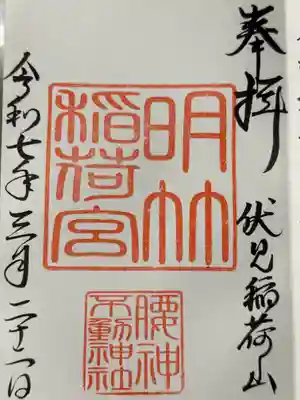 奉拝 伏見稲荷山
明竹
稲荷宮
腰神
不動神社
令和七年三月二十二日